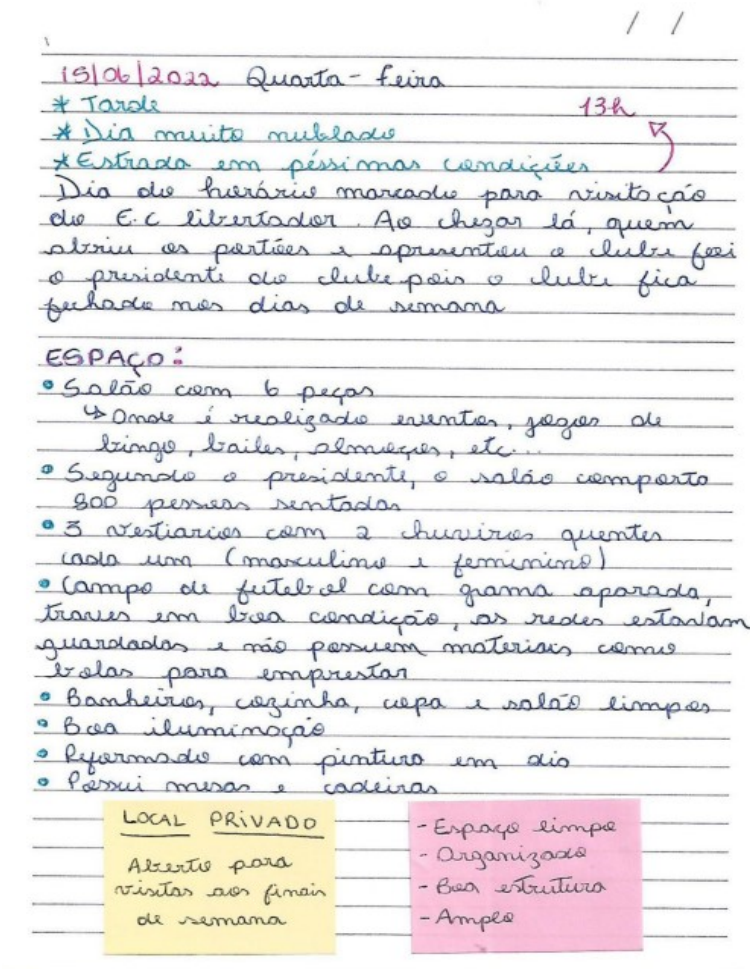 / /
15/06/2022 Quarta-feira
* Tarde 13h
* Dia muito nublado
* Estrada em péssimas condições
Dia do horário marcado para visitação
do E.C libertador. Ao chegar lá, quem
abriu os portões e apresentou o clube foi
o presidente do clube pois o clube fica
fechado nos dias de semana
ESPAÇO:
• Salão com 6 peças
↳ Onde é realizado eventos, jogos de
bingo, bailes, almoços, etc...
• Segundo o presidente, o salão comporta
800 pessoas sentadas
• 3 vestiarios com 2 chuveiros quentes
cada um (masculino e feminino)
• Campo de futebol com grama aparada,
traves em boa condição, as redes estavam
guardadas e não possuem materiais como
bolas para emprestar
• Banheiros, cozinha, copa e salão limpos
• Boa iluminação
• Reformado com pintura em dia
• Possui mesas e cadeiras
LOCAL PRIVADO
Aberto para
visitas aos finais
de semana
- Espaço limpo
- Organizado
- Boa estrutura
- Amplo